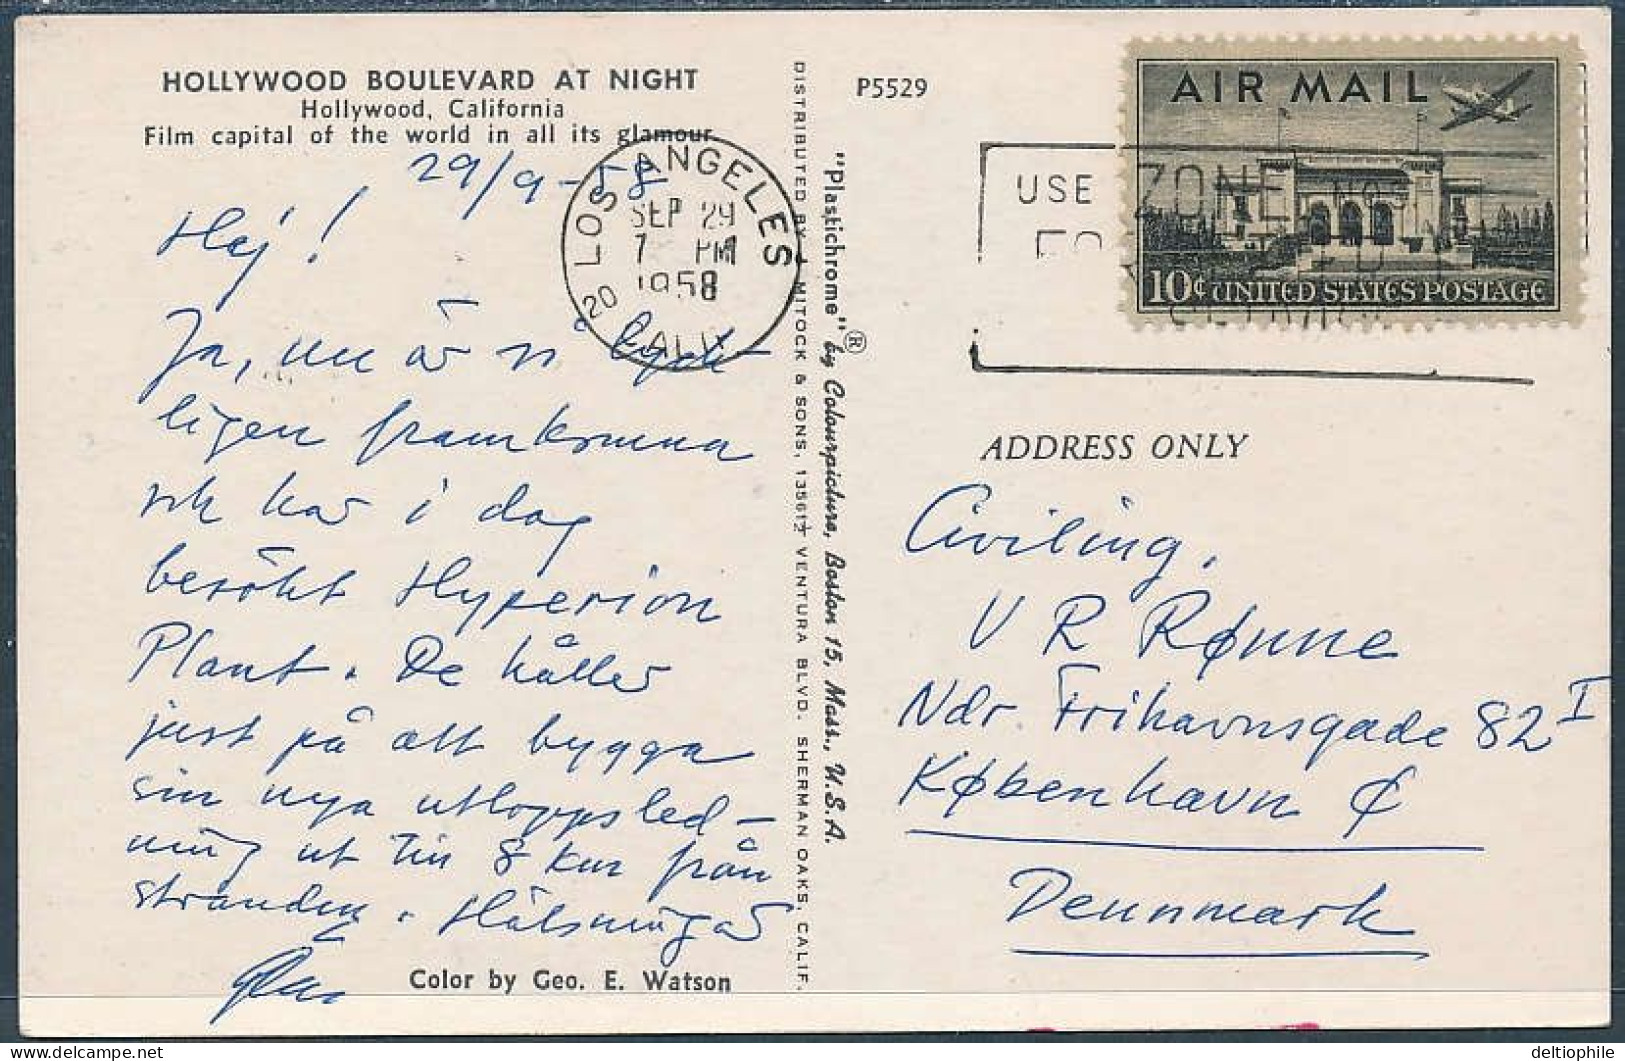 HOLLYWOOD BOULEVARD AT NIGHT
Hollywood, California
Film capital of the world in all its glamour.
29/9-58
Hej!
Ja, nu är vi lyck-
ligen framkomna
och har i dag
besökt Hyperion
Plant. De håller
just på att bygga
sin nya utloppsled-
ning ut till 8 km från
stranden. Hälsningar
Color by Geo. E. Watson
LOS ANGELES
20 CALIF
SEP 29
7 PM
1958
DISTRIBUTED BY MITOCK & SONS, 13561½ VENTURA BLVD. SHERMAN OAKS, CALIF.
"Plastichrome"® by Colourpicture, Boston 15, Mass., U.S.A.
P5529
AIR MAIL
10¢ UNITED STATES POSTAGE
USE ZONE NOS
ADDRESS ONLY
Civiling.
V R Rønne
Ndr. Frihavnsgade 82 I
København Ø
Dennmark
deltiophile